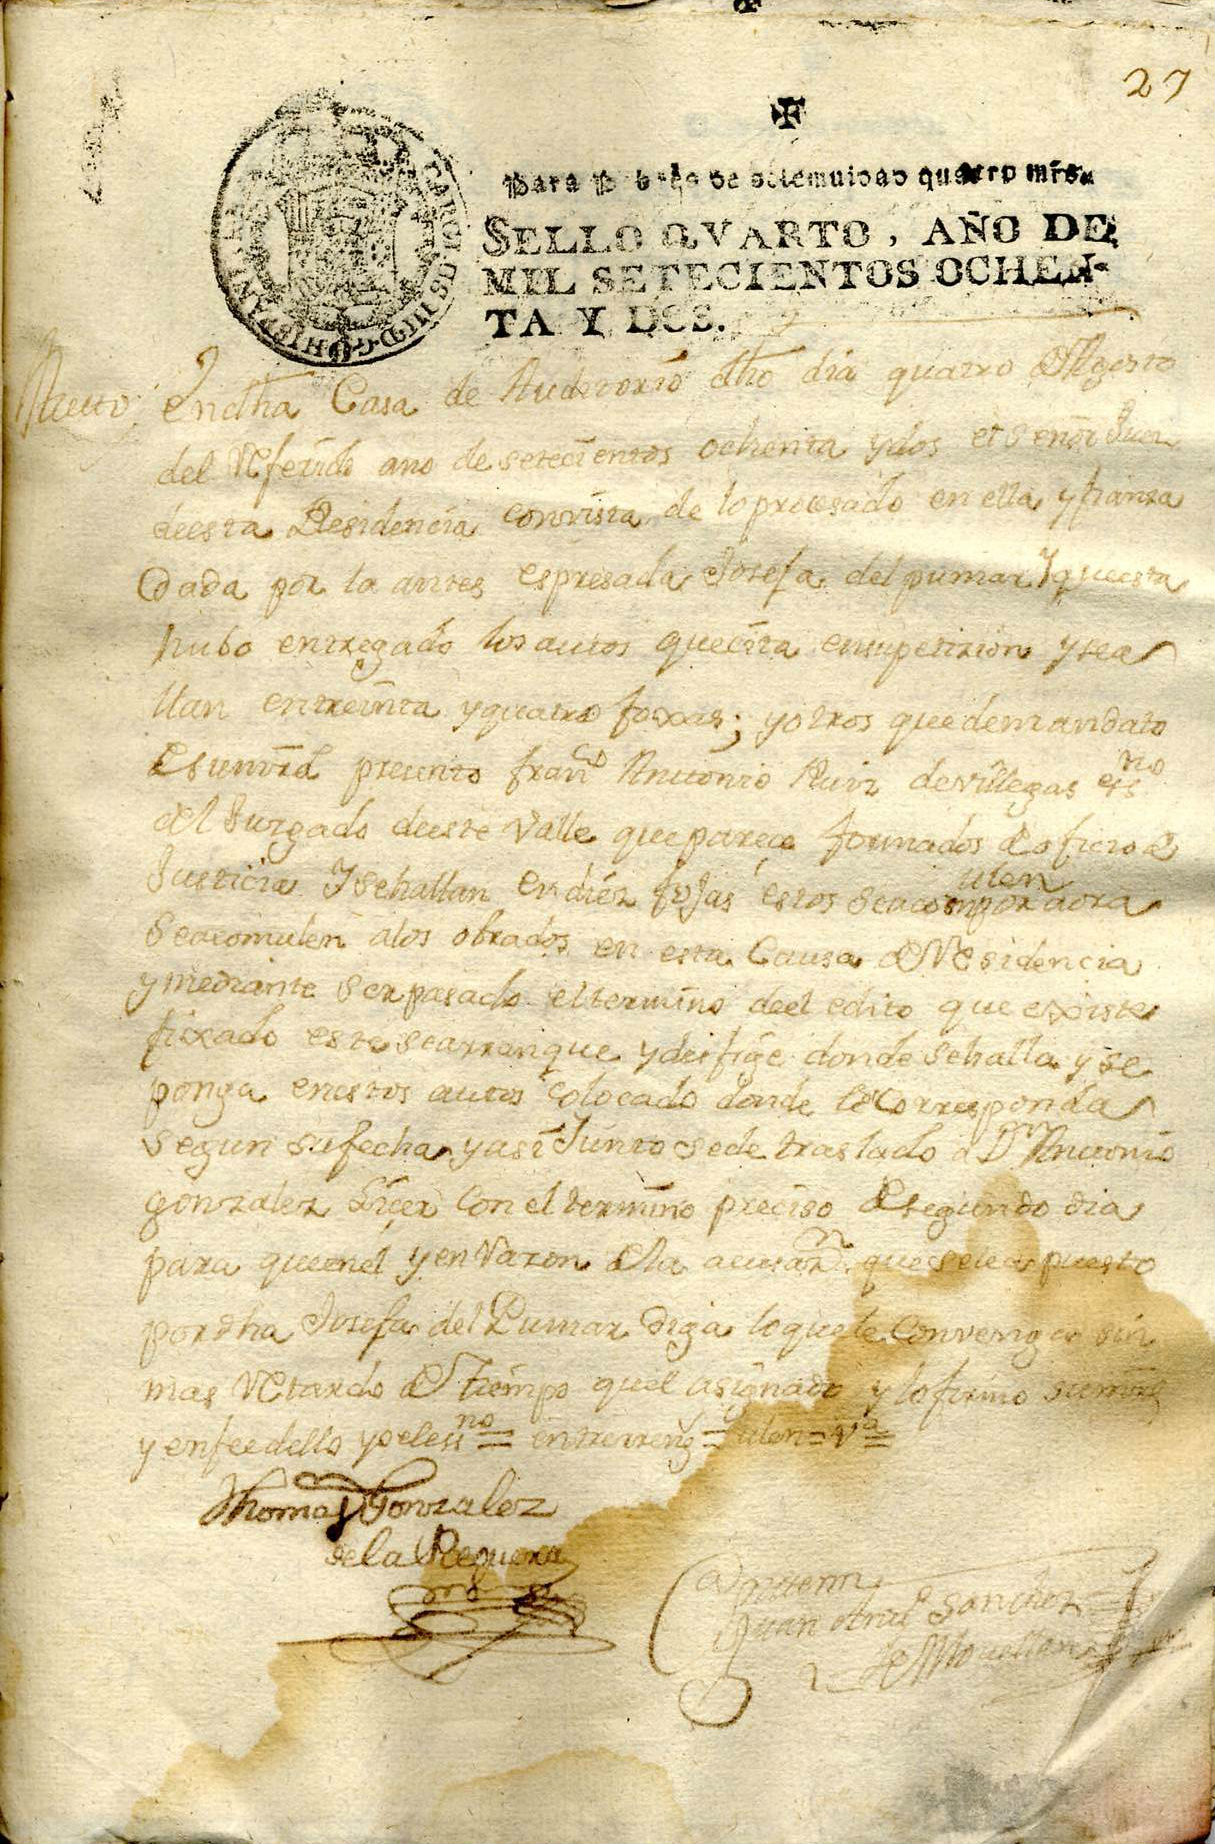 27
Para Pobres de solemnidad quatro mrs.
SELLO QVARTO, AÑO DE
MIL SETECIENTOS OCHEN-
TA Y DOS.
CAROLUS III D G HISPANIAR
Auto
En dha Casa de dho dia quatro de Agosto
del referido año de setecientos ochenta y dos el señor Juez
de esta Residencia con vista de lo procesado en ella, y fianza
dada por la antes espresada Josefa del pumar Y que esta
hubo entregado los autos que cita en su peticion y sea
llan en treinta y quatro foxas; y otros que de mandato
de su mrd presento franco Antonio Ruiz de villegas essno
del Juzgado de este Valle que parece formados de oficio de
Justicia Y se hallan en diez fojas estos se acom por aora
ulen
se acomulen a los obrados en esta Causa de Residencia
y mediante ser pasado el termino de el edito que existe
fixado este se arranque y desfige donde se halla y se
ponga en estos autos colocado donde le corresponda
segun su fecha, y asi Junto se de traslado a Dn Antonio
gonzalez con el termino preciso de segundo dia
para que en el y en razon de la acusazn que se le a puesto
por dha Josefa del Pumar diga lo que le convenga sin
mas retardo de tiempo quel asignado y lo firmo su mrd
y en fee dello yo el essno = entrerrengs = ulen = Va =
Thomas Gonzalez
de la Reguera
Ante mi
Juan Anttº Sanchez
de Movellan